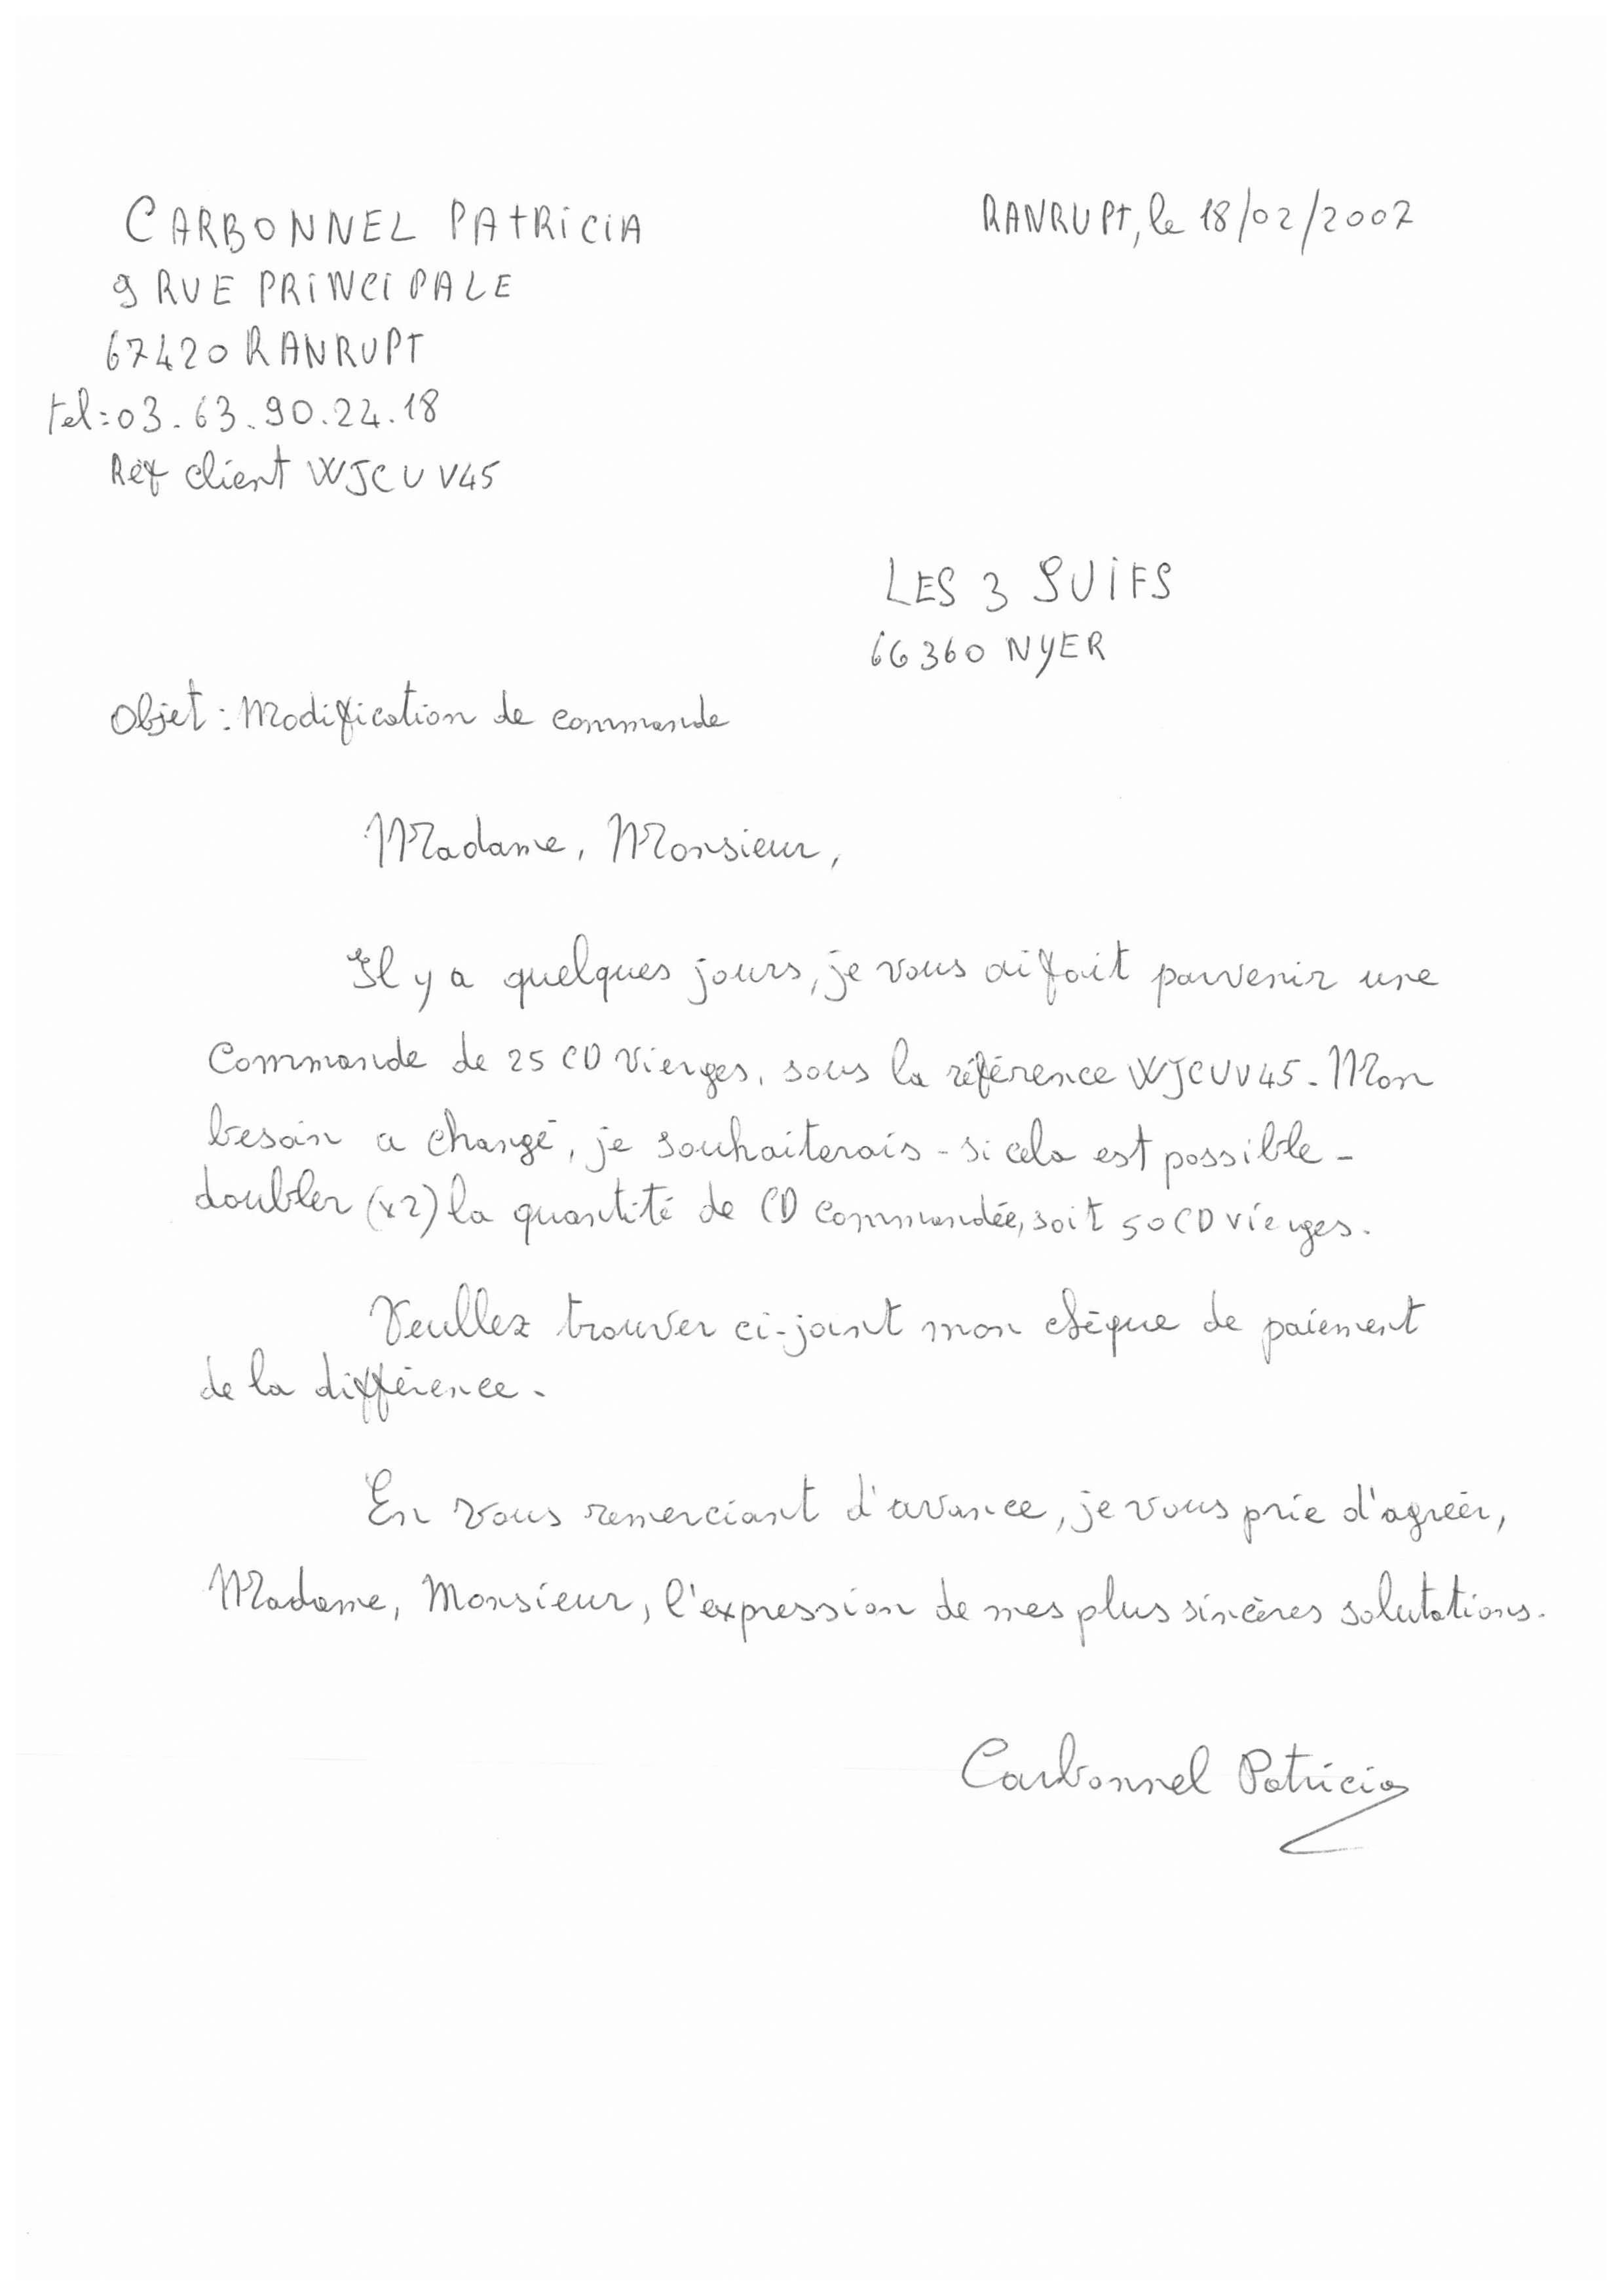 CARBONNEL PATRICIA
RANRUPT, le 18/02/2007
9 RUE PRINCIPALE
67420 RANRUPT
tel: 03.63.90.22.18
Réf client WJCUV45
LES 3 SUIFS
66360 NYER
Objet : Modification de commande
Madame, Monsieur,
Il y a quelques jours, je vous ai fait parvenir une
Commande de 25 CD Vierges, sous la référence WJCUV45. Mon
besoin a changé, je souhaiterais - si cela est possible -
doubler (x2) la quantité de CD commandée, soit 50 CD vierges.
Veullez trouver ci-joint mon chèque de paiement
de la différence.
En vous remerciant d'avance, je vous prie d'agréér,
Madame, Monsieur, l'expression de mes plus sincères salutations.
Carbonnel Patricia